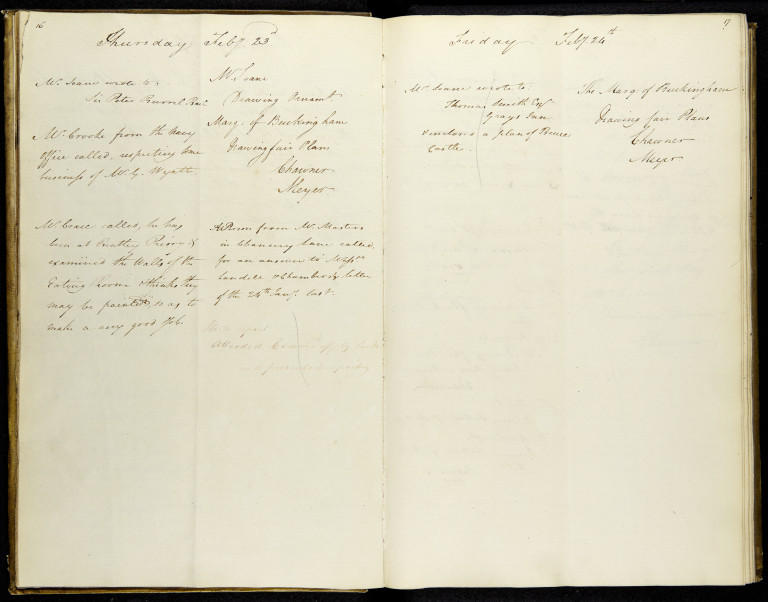 16
Thursday Feby. 23d
Mr. Soane wrote to
Sir Peter Burrel Bart.
Mr. Crooke from the Navy
office called, respecting some
business of Mr. G. Wyatt
Mr. Crace called, he has
been at Bentley Priory &
examined the Walls of the
Eating Room & thinks they
may be painted so as to
make a very good Job.
Mr. Soane
Drawing Ornamt.
Marq: of Buckingham
Drawing fair Plans
Chawner
Meyer
A Person from Mr. Masters
in Chancery Lane called,
for an answer to Messrs.
& Chambers's letter
of the 24th Jany. last.
Attended
17
Friday Feby. 24th
Mr. Soane wrote to
Thomas Smith Esqr.
Grays Inn
& inclosed a plan of
Castle.
The Marq: of Buckingham
Drawing fair Plans
Chawner
Meyer